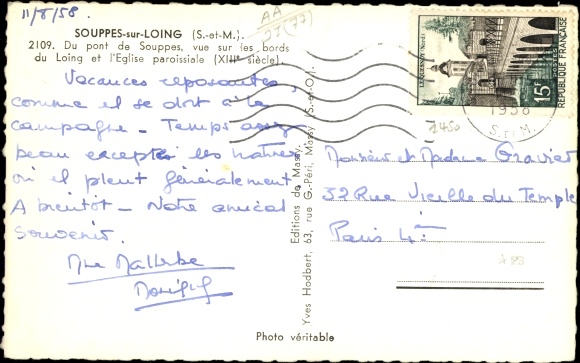 11/8/58.
SOUPPES-sur-LOING (S.-et-M.).
2109. Du pont de Souppes, vue sur les bords
du Loing et l'Eglise paroissiale (XIIIᵉ siècle).
Vacances reposantes,
comme il se doit à la
campagne - Temps assez
beau excepté les matinées
où il pleut généralement
A bientôt - Notre amical
souvenir.
Mme Mallerbe
Editions de Massy.
Yves Hodbert, 63, rue G.-Péri, Massy (S.-et-O.).
Photo véritable
LE QUESNOY (Nord)
15F
POSTES
REPUBLIQUE FRANÇAISE
1958
S. ET M.
Monsieur et Madame Gravier
32 Rue Vieille du Temple
Paris 4ème